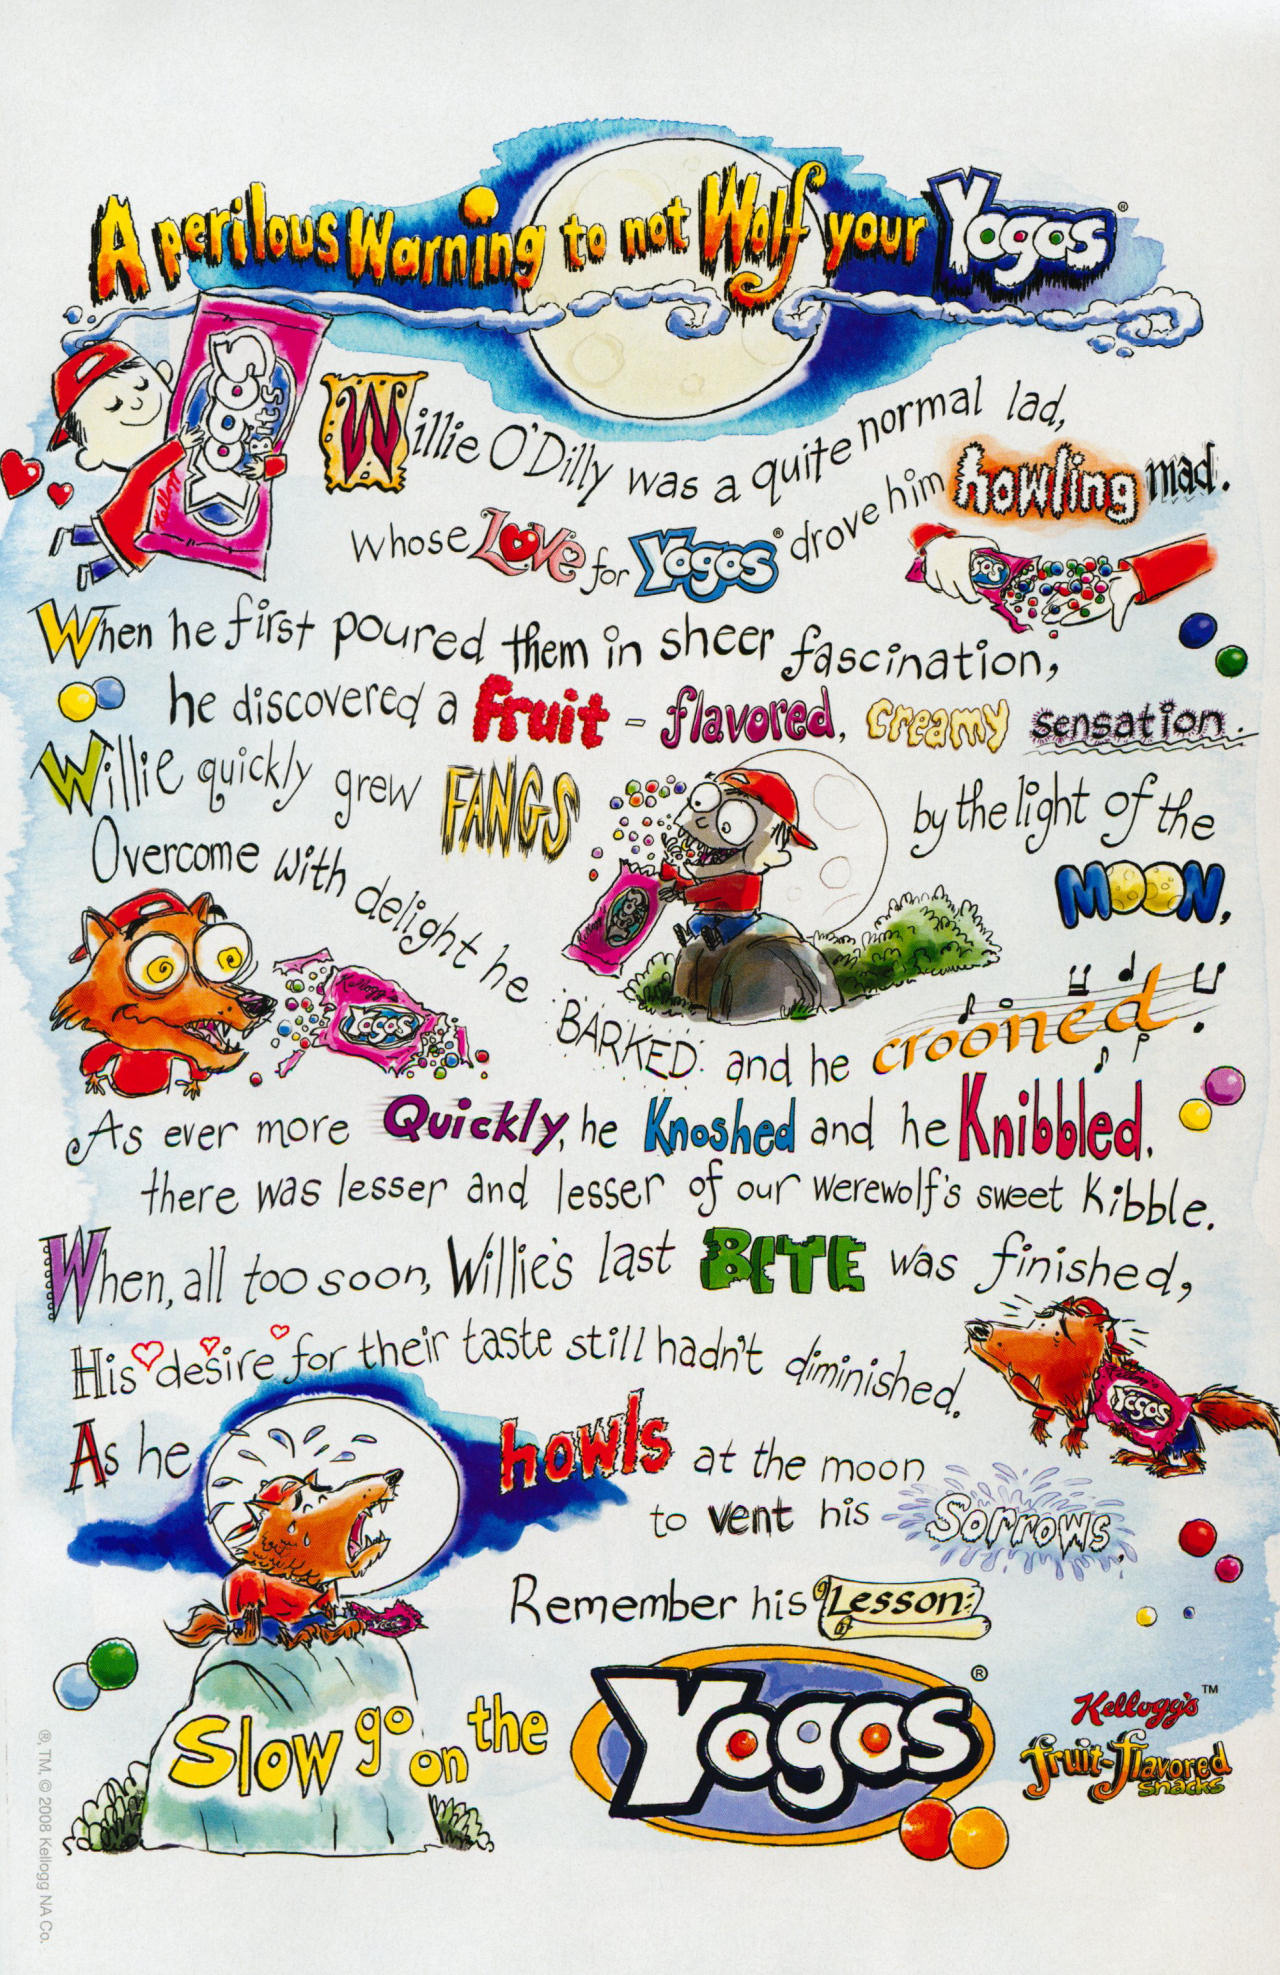 A perilous Warning to not Wolf your Yogos®
Yogos Bits
Kellogg's
Willie O'Dilly was a quite normal lad,
whose Love for Yogos® drove him howling mad.
When he first poured them in sheer fascination,
he discovered a fruit-flavored, creamy sensation.
Willie quickly grew FANGS by the light of the MOON,
Overcome with delight he BARKED and he crooned.
Kellogg's
Yogos
As ever more Quickly, he Knoshed and he Knibbled,
there was lesser and lesser of our werewolf's sweet kibble.
When, all too soon, Willie's last BITE was finished,
His desire for their taste still hadn't diminished.
Yogos
As he howls at the moon
to vent his Sorrows,
Remember his Lesson:
Slow go on the Yogos®
Kellogg's™
fruit-flavored
snacks
®, TM, © 2008 Kellogg NA Co.